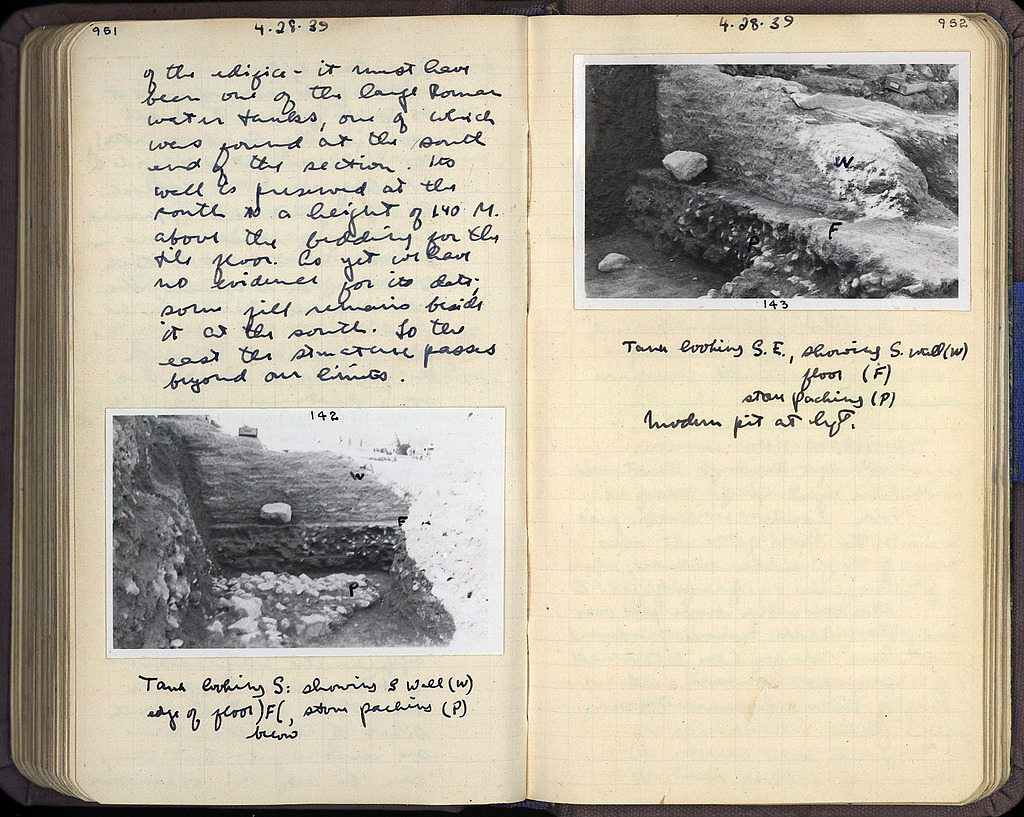 951
4.28.39
of the edifice - it must have
been one of the large Roman
water tanks, one of which
was found at the south
end of the section. Its
wall is preserved at the
south to a height of 1.40 M.
above the bedding for the
tile floor. As yet we have
no evidence for its date;
some fill remains beside
it at the south. To the
east the structure passes
beyond our limits.
142
W
F
P
Tank looking S: showing S Wall (W)
edge of floor )F(, stone packing (P)
below
4.28.39
952
W
F
P
143
Tank looking S.E., showing S. wall (W)
floor (F)
stone packing (P)
Modern pit at left.